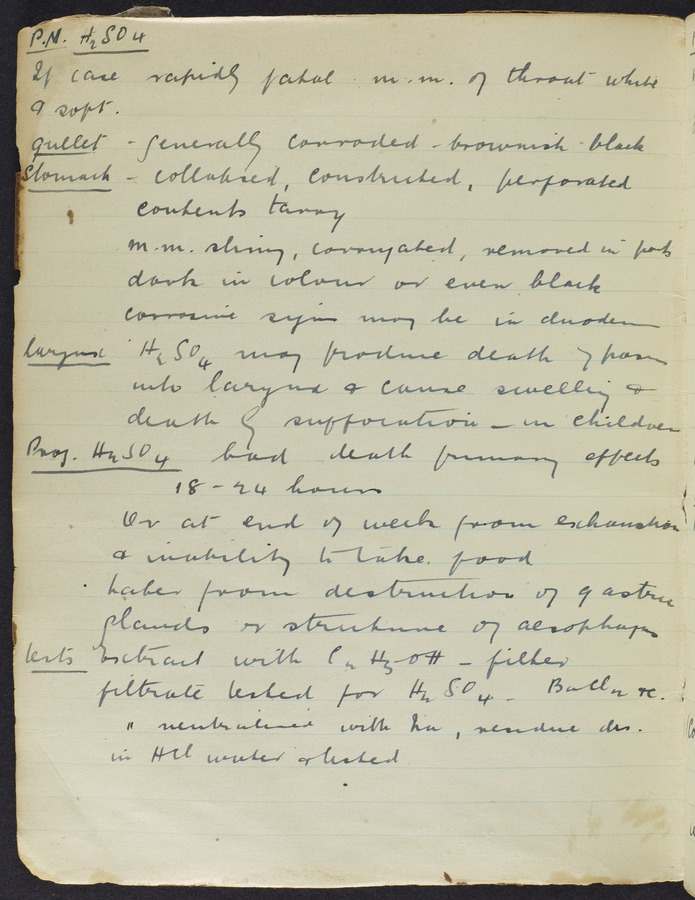 P.M. H2SO4
If case rapidly fatal m.m. of throat white
& soft.
gullet - generally corroded - brownish black
Stomach - collapsed, constricted, perforated
contents tarry
m.m. slimy, corrugated, removed in parts
dark in colour or even black
corrosive signs may be in duoden
larynx H2SO4 may produce death by passing
into larynx & cause swelling &
death by suffocation - in children
Prog. H2SO4 bad death primary effects
18-24 hours
Or at end of weeks from exhaustion
& inability to take food
Later from destruction of gastric
glands or stricture of aesophagus
tests Extract with C2H5OH - filter
filtrate tested for H2SO4 - BaCl2 &c.
" neutralised with , residue dis.
in HCl water & tested